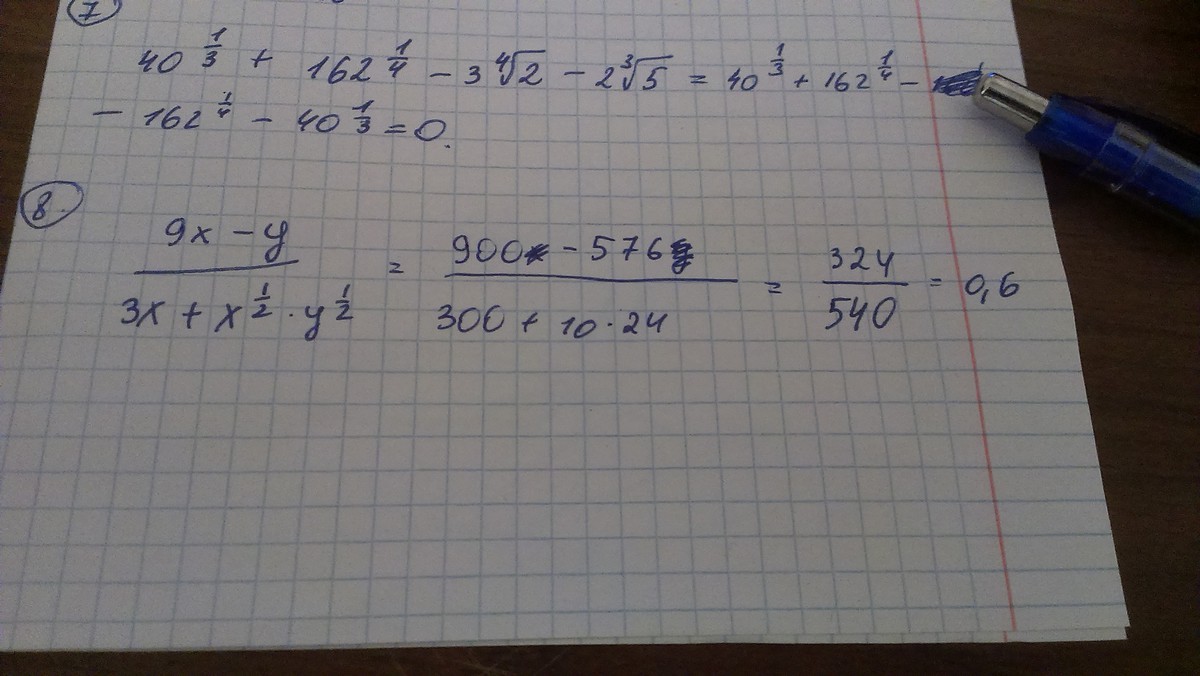 7
40^(1/3) + 162^(1/4) − 3∜2 − 2∛5 = 40^(1/3) + 162^(1/4) −
− 162^(1/4) − 40^(1/3) = 0.
8.
(9x − y)/(3x + x^(1/2) · y^(1/2)) = (900 − 576)/(300 + 10 · 24) = 324/540 = 0,6